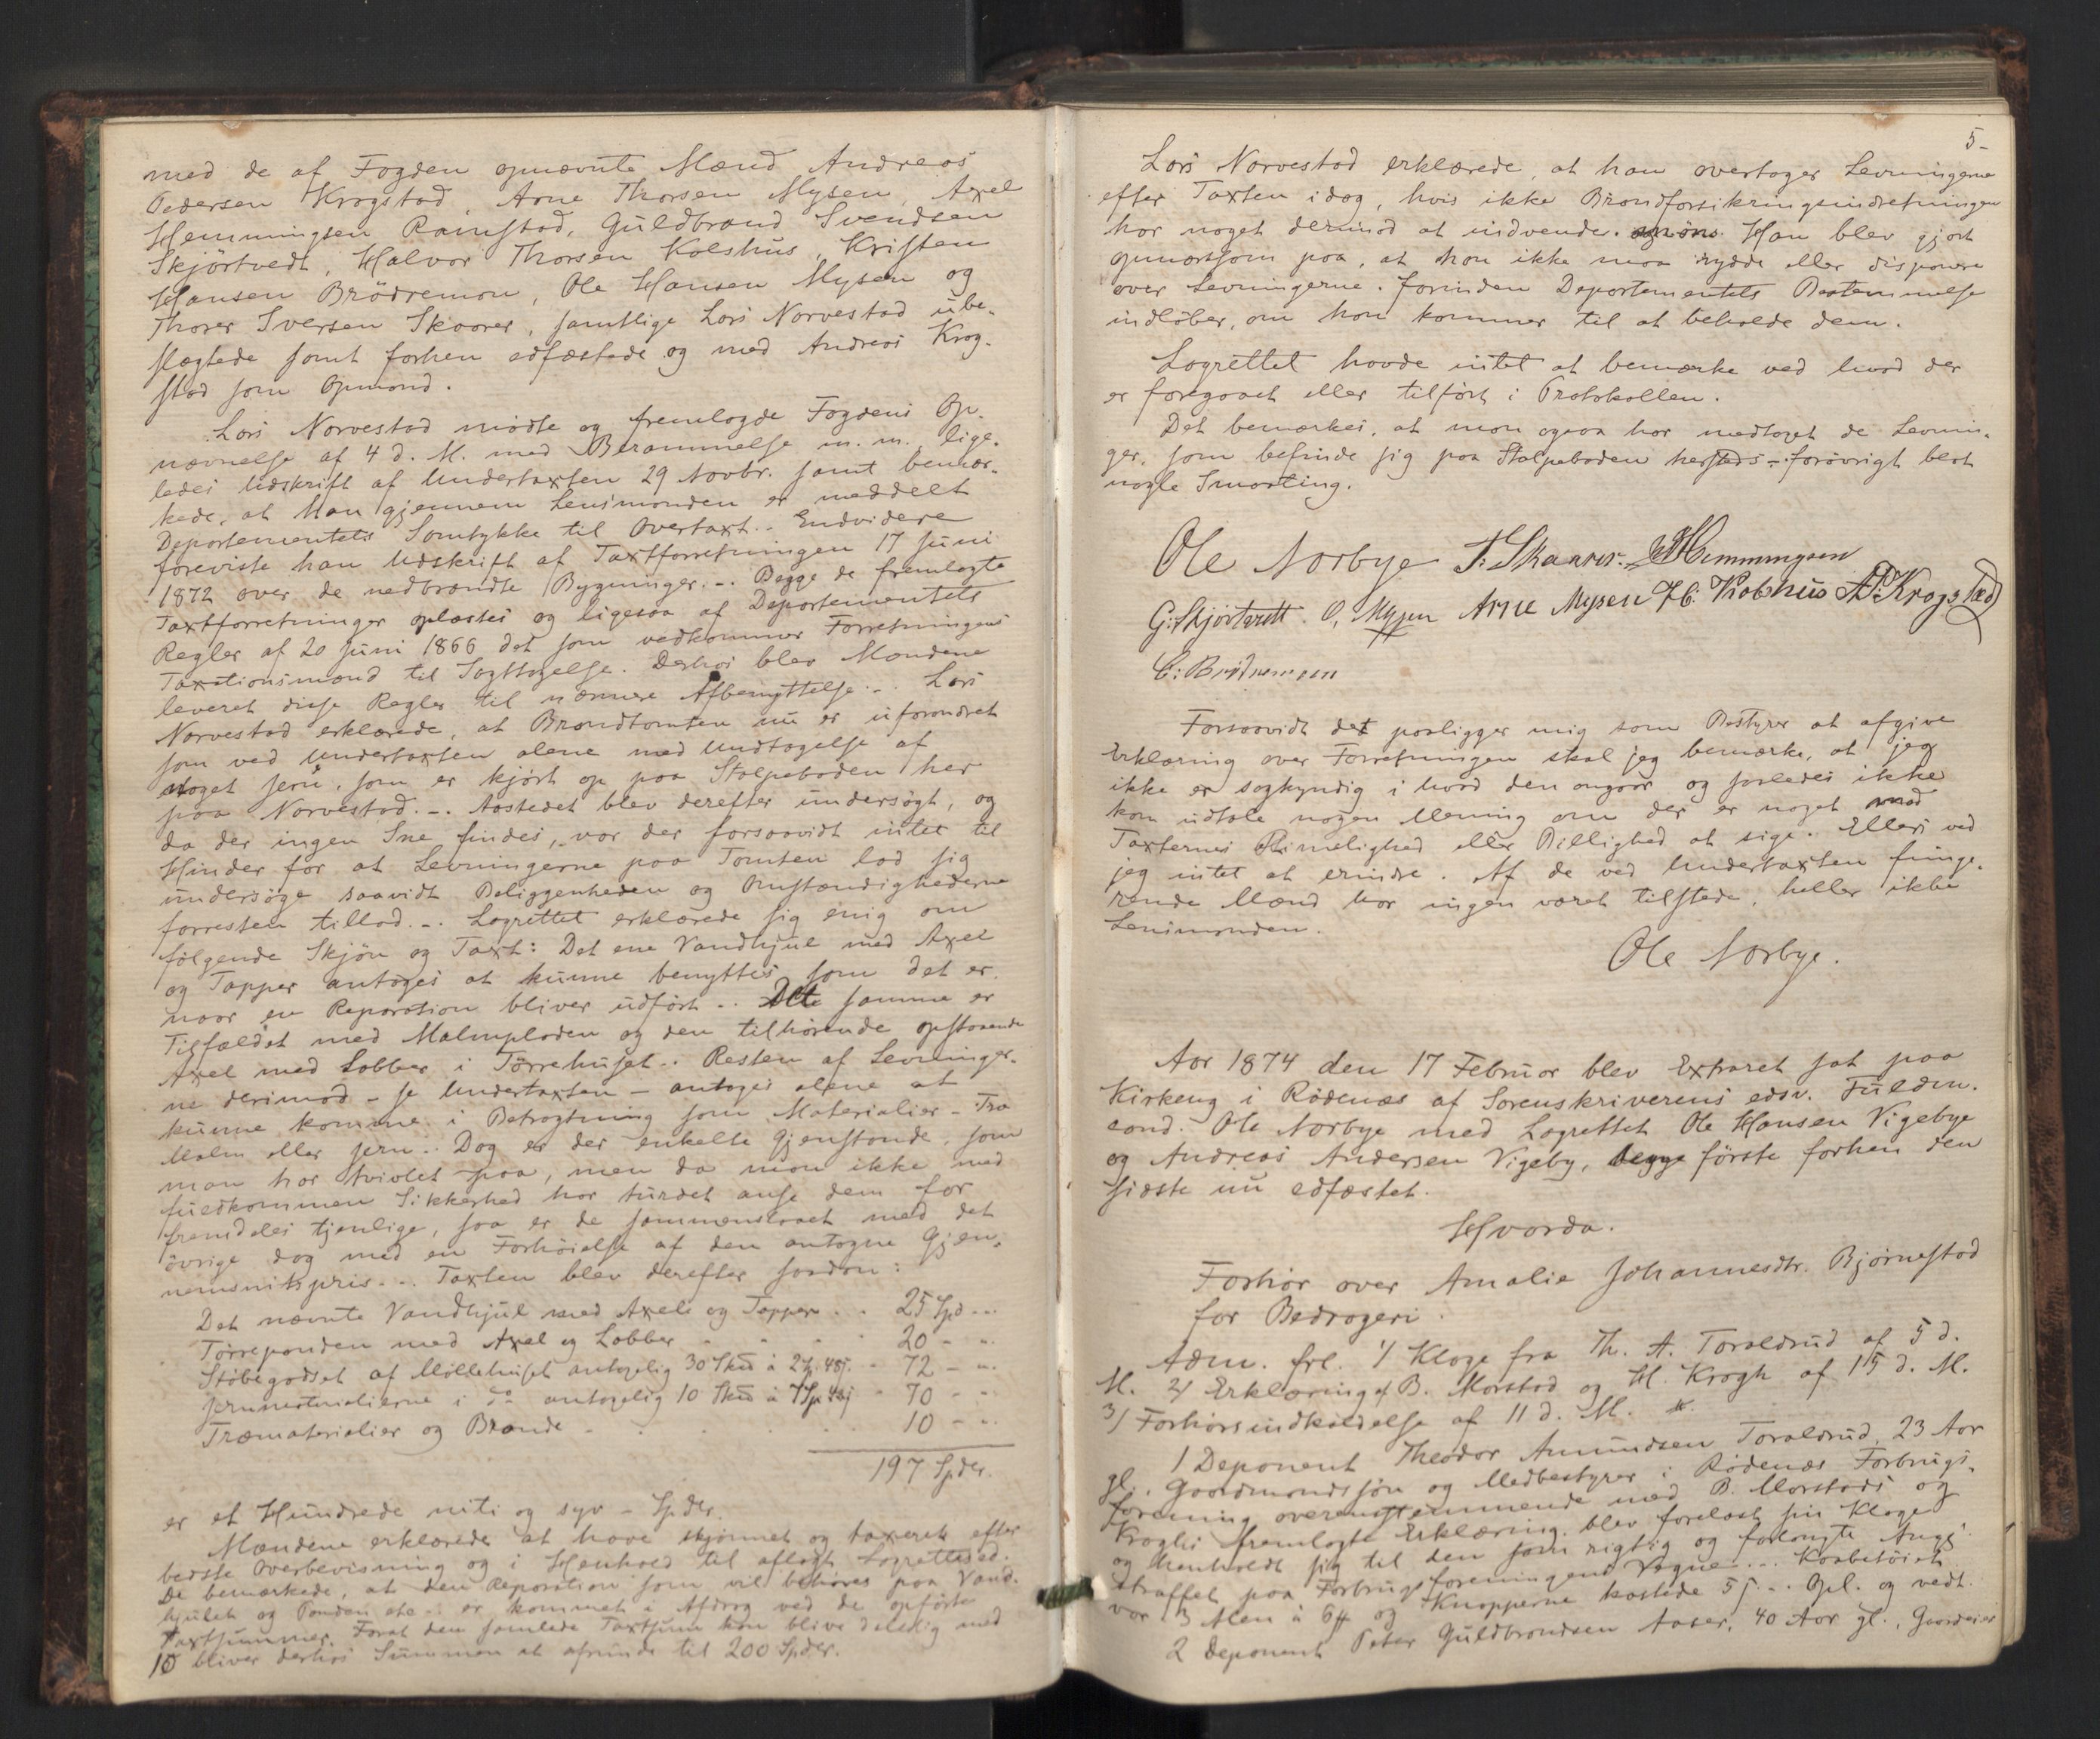 med de af Fogden opnævnte Mænd Andreas
Pedersen Krogstad, Arne Thorsen Mysen, Axel
Hemmingsen Ramstad, Guldbrand Svendsen
Skjörtvedt, Halvor Thorsen Kolshus, Kristen
Hansen Brödremoen, Ole Hansen Mysen og
Thorer Iversen Skaarer, samtlige Lars Narvestad ube-
slægtede samt forhen edfæstede og med Andreas Krog-
stad som Opmand.
Lars Narvestad mødte og fremlagde Fogdens Op-
nævnelse af 4 d. M. med Berammelse m. m. lige-
ledes Udskrift af Undertaxten 29 Novbr. samt bemær-
kede, at Man gjennem Lensmanden er meddelt
Departementets Samtykke til Overtaxt.. Endvidere
foreviste han Udskrift af Taxtforretningen 17 Juni
1872 over de nedbrændte Bygninger.-. Begge de fremlagte
Taxtforretninger oplæstes og ligesaa af Departementets
Regler af 20 Juni 1866 det som vedkommer Forretningens
Taxationsmænd til Iagttagelse. Derhos blev Mændene
leveret disse Regler til nærmere Afbenyttelse.-. Lars
Narvestad erklærede, at Brandtomten nu er uforandret
som ved Undertaxten alene med Undtagelse af
noget Jern, som er kjört op paa Stolpeboden her
paa Narvestad.-. Aastedet blev derefter undersøgt, og
da der ingen Sne findes, var der forsaavidt intet til
Hinder for at Levningerne paa Tomten lod sig
undersöge saavidt Beliggenheden og Omstændighederne
forresten tillod.-. Lagrettet erklærede sig enig om
fölgende Skjön og Taxt: Det ene Vandhjul med Axel
og Tapper antages at kunne benyttes som det er
naar en Reparation bliver udfört.. Det samme er
Tilfældet med Malmpladen og den tilhörende opstaaende
Axel med Labber i Törrehuset.. Resten af Levninger-
ne derimod – se Undertaxten – antages alene at
kunne komme i Betragtning som Materialier – Træ
Malm eller Jern.. Dog er der enkelte Gjenstande, som
man har tvivlet paa, men da man ikke med
fuldkommen Sikkerhed har turdet anse dem for
fremdeles tjenlige, saa er de sammenslaaet med det
övrige dog med en Forhöielse af den antagne Gjen-
nemsnitspris.-. Taxten blev derefter saadan:
Det nævnte Vandhjul med Axel og Tapper . . 25 Spd ..
Törrepanden med Axel og Labber . . . 20 - ..
Stöbegodset af Möllehuset antagelig 30 Skd à 2 Sp. 48 s. - 72 - ..
Jernmaterialierne i do antagelig 10 Skd à 7 Sp. - 70 - ..
Træmaterialier og Brænde . . . . 10 - ..
197 Spdlr.
er et Hundrede niti og syv – Spdlr.
Mændene erklærede at have skjönnet og taxeret efter
bedste Overbevisning og i Henhold til aflagt Lagrettesed.
De bemærkede, at den Reparation som vil behöves paa Vand-
hjulet og Panden etc.. er kommet i Afdrag ved de opförte
Taxtsummer. Forat den samlede Taxtsum kan blive delelig med
10 bliver derhos Summen at afrunde til 200 Spdlr.
5-
Lars Narvestad erklærede, at han overtager Levningerne
efter Taxten idag, hvis ikke Brandforsikringsindretningen
har noget derimod at indvende. Han blev gjort
opmærksom paa, at han ikke maa rydde eller disponere
over Levningerne, forinden Departementets Bestemmelse
indlöber, om han kommer til at beholde dem.
Lagrettet havde intet at bemærke ved hvad der
er foregaaet eller tilfört i Protokollen.
Det bemærkes, at man ogsaa har medtaget de Levnin-
ger, som befinde sig paa Stolpeboden hersteds – forövrigt blot
nogle Smaating.
Ole Norbye T. Skaarer. A Hemmingsen
G: Skjörtvedt. O, Mysen Arne Mysen H. Kolshus A. P. Krogstad
C: Brödremoen
Forsaavidt det paaligger mig som Bestyrer at afgive
Erklæring over Forretningen skal jeg bemærke, at jeg
ikke er sagkyndig i hvad den angaar og saaledes ikke
kan udtale nogen Mening om der er noget mod
Taxternes Rimelighed eller Billighed at sige. Ellers ved
jeg intet at erindre. Af de ved Undertaxten funge-
rende Mænd har ingen været tilstede, heller ikke
Lensmanden.
Ole Norbye.
Aar 1874 den 17 Februar blev Extraret sat paa
Kirkeng i Rödenæs af Sorenskriverens edsv. Fuldm.
cand. Ole Norbye med Lagrettet Ole Hansen Vigebye
og Andreas Andersen Vigeby, begge förste forhen den
sidste nu edfæstet.
Hvorda.
Forhör over Amalie Johannesdtr. Bjørnestad
for Bedrageri.
Adm. frl. 1/ Klage fra Th. A. Toraldrud af 5 d.
M. 2/ Erklæring af B. Morstad og H. Krogh af 15 d. M.
3/ Forhörsindkaldelse af 11 d. M.
1 Deponent Theodor Amundsen Toraldrud, 23 Aar
gl. Gaardmandssön og Medbestyrer i Rödenæs Forbrugs-
forening overensstemmende med B. Morstads og
Kroghs fremlagte Erklæring. blev forelæst sin Klage
og henholdt sig til den som rigtig og forlangte Angj.
straffet paa Forbrugsforeningens Vegne.-. Kaabetöiet
var 3 Alen à 6 og Knapperne kostede 5 s.-. Opl. og vedt.
2 Deponent Peter Guldbrandsen Aaser, 40 Aar gl., Gaardeier